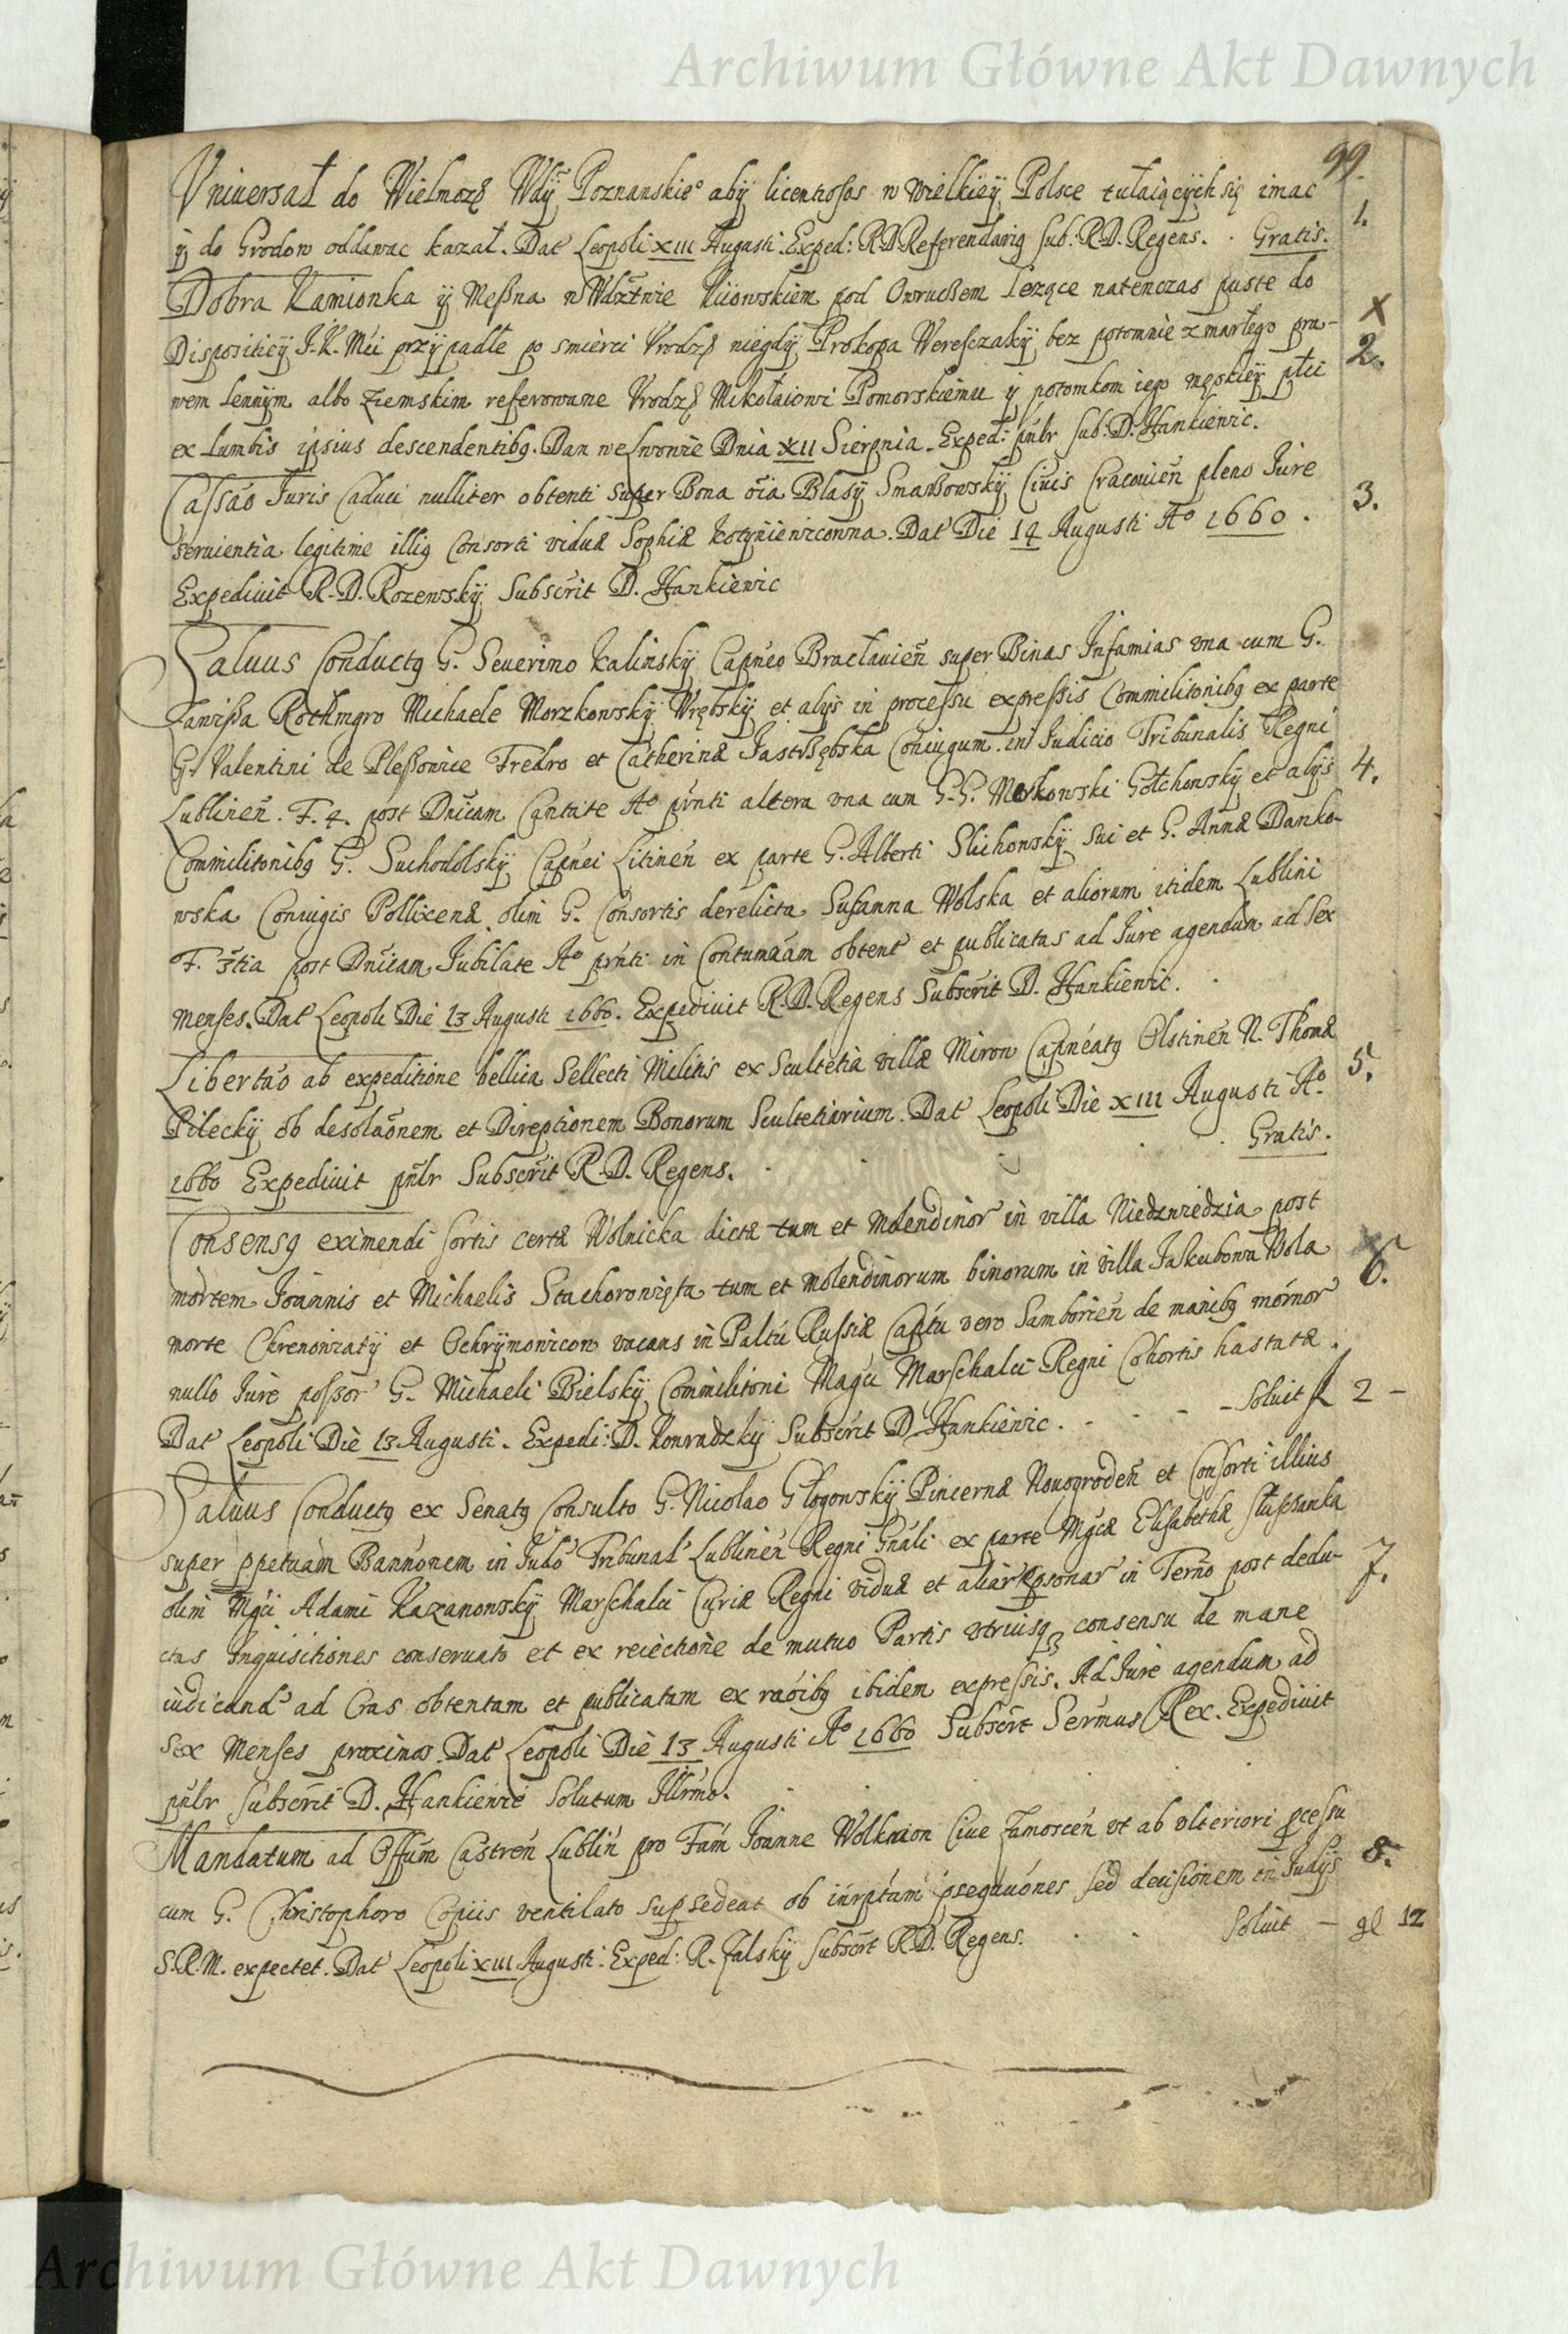 Archiwum Główne Akt Dawnych
99
Vniuersał do Wielmoz Wdÿ Poznanskie° abÿ licentiosos w wielkieÿ Polsce tułaiącÿch się imac
ÿ do Grodow oddawac kazał. Dat Leopoli XIII Augusti. Exped: R.D. Referendarig Sub: R.D. Regens. Gratis.
1.
Dobra Kamionka ÿ Meßna w Wdztwie Kiiowskiem pod Owruchem lezące natenczas puste do
X
Dispositieÿ J.K.Mći przÿpadłe po smierci Vrodz niegdÿ Prokopa Wereszczakÿ bez potomnie zmarłego pra-
2.
wem lennÿm albo Ziemskim referowane Vrodz Mikołaiowi Pomorskiemu ÿ potomkom iego męskieÿ płci
ex Lumbis ipsius descendentibg. Dan we Lwowie Dnia XII Sierpnia. Exped: pńlr Sub: D. Hankiewic.
Cassao Juris Caduci nulliter obtenti super Bona oia Blasÿ Civis Cracouień pleno Jure
3.
seruientia legitime illig Consorti viduæ Sophiæ. Dat Die 14 Augusti A° 1660.
Expediuit R.D. Rozewskÿ Subscrit D. Hankiewic
Saluus Conductg G. Seuerino Kalinskÿ Capneo Bracłauień super Binas Infamias vna cum G.
Rothmgro Michaele Morzkowskÿ Wrębskÿ et alÿs in processu expressis Commilitonibg ex parte
G. Valentini de Pleßowice Fredro et Catherinæ Jastrzębska Coniugum in Judicio Tribunalis Regni
Lublineń. F. 4. post Dnicam Cantate A° pnti altera vna cum G.G. Mokowski Gołchowskÿ et alÿs
4.
Commilitonibg G. Suchodolskÿ Capnei Litineń ex parte G. Alberti Slichowskÿ sui et G. Annæ Danko-
wska Coniugis Pollixenæ olim G. Consortis derelicta Susanna Wolska et aliorum itidem Lublini
F. 3tia post Dnicam Jubilate A° pnti in Contumaam obtent et publicatas ad Jure agendum ad sex
menses. Dat Leopoli Die 13 Augusti 1660. Expediuit R.D. Regens Subscrit D. Hankiewic.
Libertao ab expeditione bellica Sellecti Militis ex Scultetia villæ Miron Capneatg Olstineń N. Thomæ
5.
Pileckÿ ob desolaonem et Direptionem Bonorum Scultetiarium. Dat Leopoli Die XIII Augusti A°
1660 Expediuit pńlr Subscrit R.D. Regens. Gratis.
Consensg eximendi sortis certæ Wolnicka dictæ tum et Molendinor in villa Niedzwiedzia post
mortem Joannis et Michaelis tum et molendinorum binorum in villa Jakubowa Wola
6.
morte et vacans in Paltu Russiæ Captu vero Samborień de manibg mornor
nullo Jure possor G. Michaeli Bielskÿ Commilitoni Magci Marschalci Regni Cohortis hastatæ.
Dat Leopoli Die 13 Augusti. Expedi: D. Konradzkÿ Subscrit D. Hankiewic. - - - Soluit fl 2 -
Saluus Conductg ex Senatg Consulto G. Nicolao Głogowskÿ Pincernæ Nouogrodeń et Consorti illius
super ppetuam Bannonem in Judo Tribunal Lublineń Regni Gnali ex parte Mgcæ Elisabethæ Słuszanka
olim Mgci Adami Kazanowskÿ Marschalci Curiæ Regni viduæ et aliar psonar in Terno post dedu-
7.
ctas Inquisitiones conseruato et ex reiectione de mutuo Partis vtriusq consensu de mane
iudicand ad Cras obtentam et publicatam ex raoibg ibidem expressis. Ad Jure agendum ad
Sex Menses proximos. Dat Leopoli Die 13 Augusti A° 1660 Subscrt Sermus Rex. Expediuit
pńlr Subscrit D. Hankiewic Solutum Illrmo.
Mandatum ad Offum Castreń Lubliń pro Fam Joanne Wolkmion Ciue Zamosceń vt ab vlteriori pcessu
8.
cum G. Christophoro Copiis ventilato supsedeat ob psequuones sed decisionem in Judÿs
S.R.M. expectet. Dat Leopoli XIII Augusti. Exped: R. Zalskÿ Subscrt R.D. Regens. Soluit - gl 12
Archiwum Główne Akt Dawnych